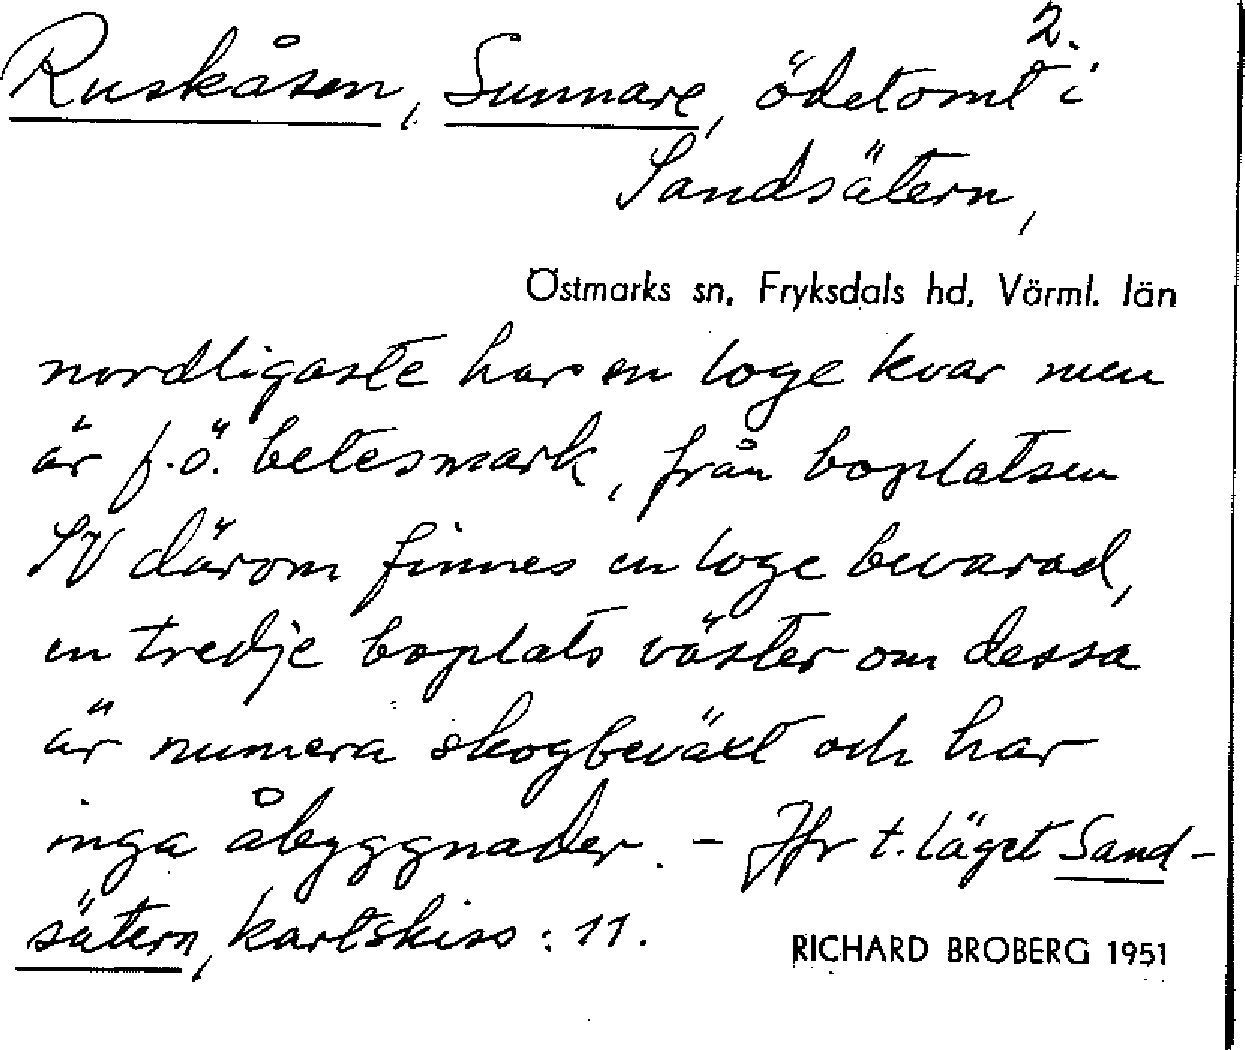 2.
Ruskåsen, Sunnare, ödetomt i
Sandsätern,
Östmarks sn, Fryksdals hd, Värml. län
nordligaste har en loge kvar men
är f.ö. betesmark, från boplatsen
SV därom finnes en loge bevarad,
en tredje boplats väster om dessa
är numera skogbeväxt och har
inga åbyggnader. - Jfr t. läget Sand-
sätern, kartskiss: 11.
RICHARD BROBERG 1951